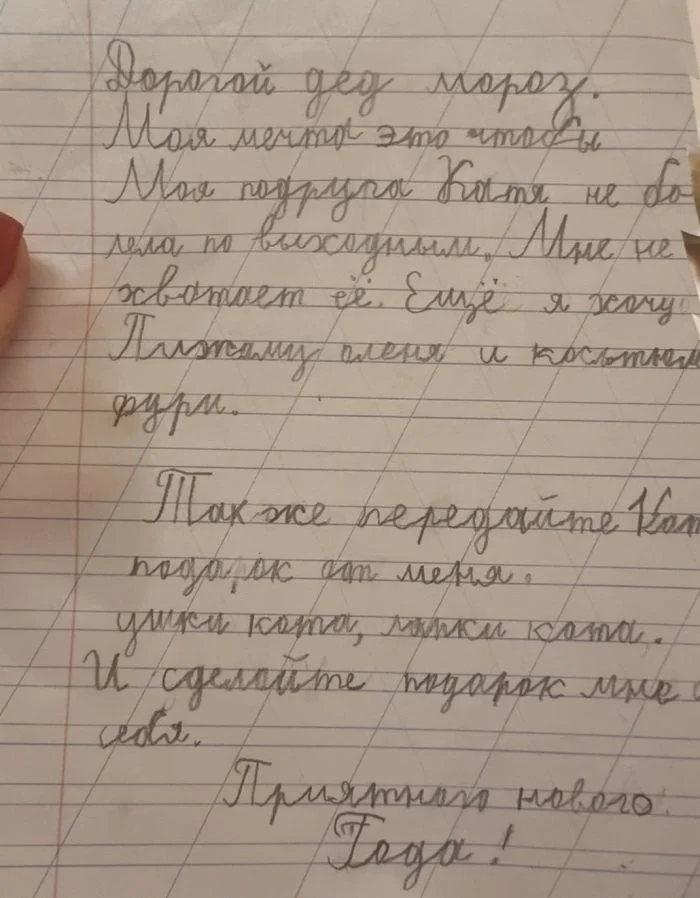 Дорогой дед мороз.
Моя мечта это чтобы
Моя подруга Катя не бо-
лела по выходным. Мне не
хватает её. Ещё я хочу
Пижаму оленя и костюм
фури.
Также передайте Кат
подарок от меня.
ушки кота, лапки кота.
И сделайте подарок мне
себя.
Приятного нового
Года!